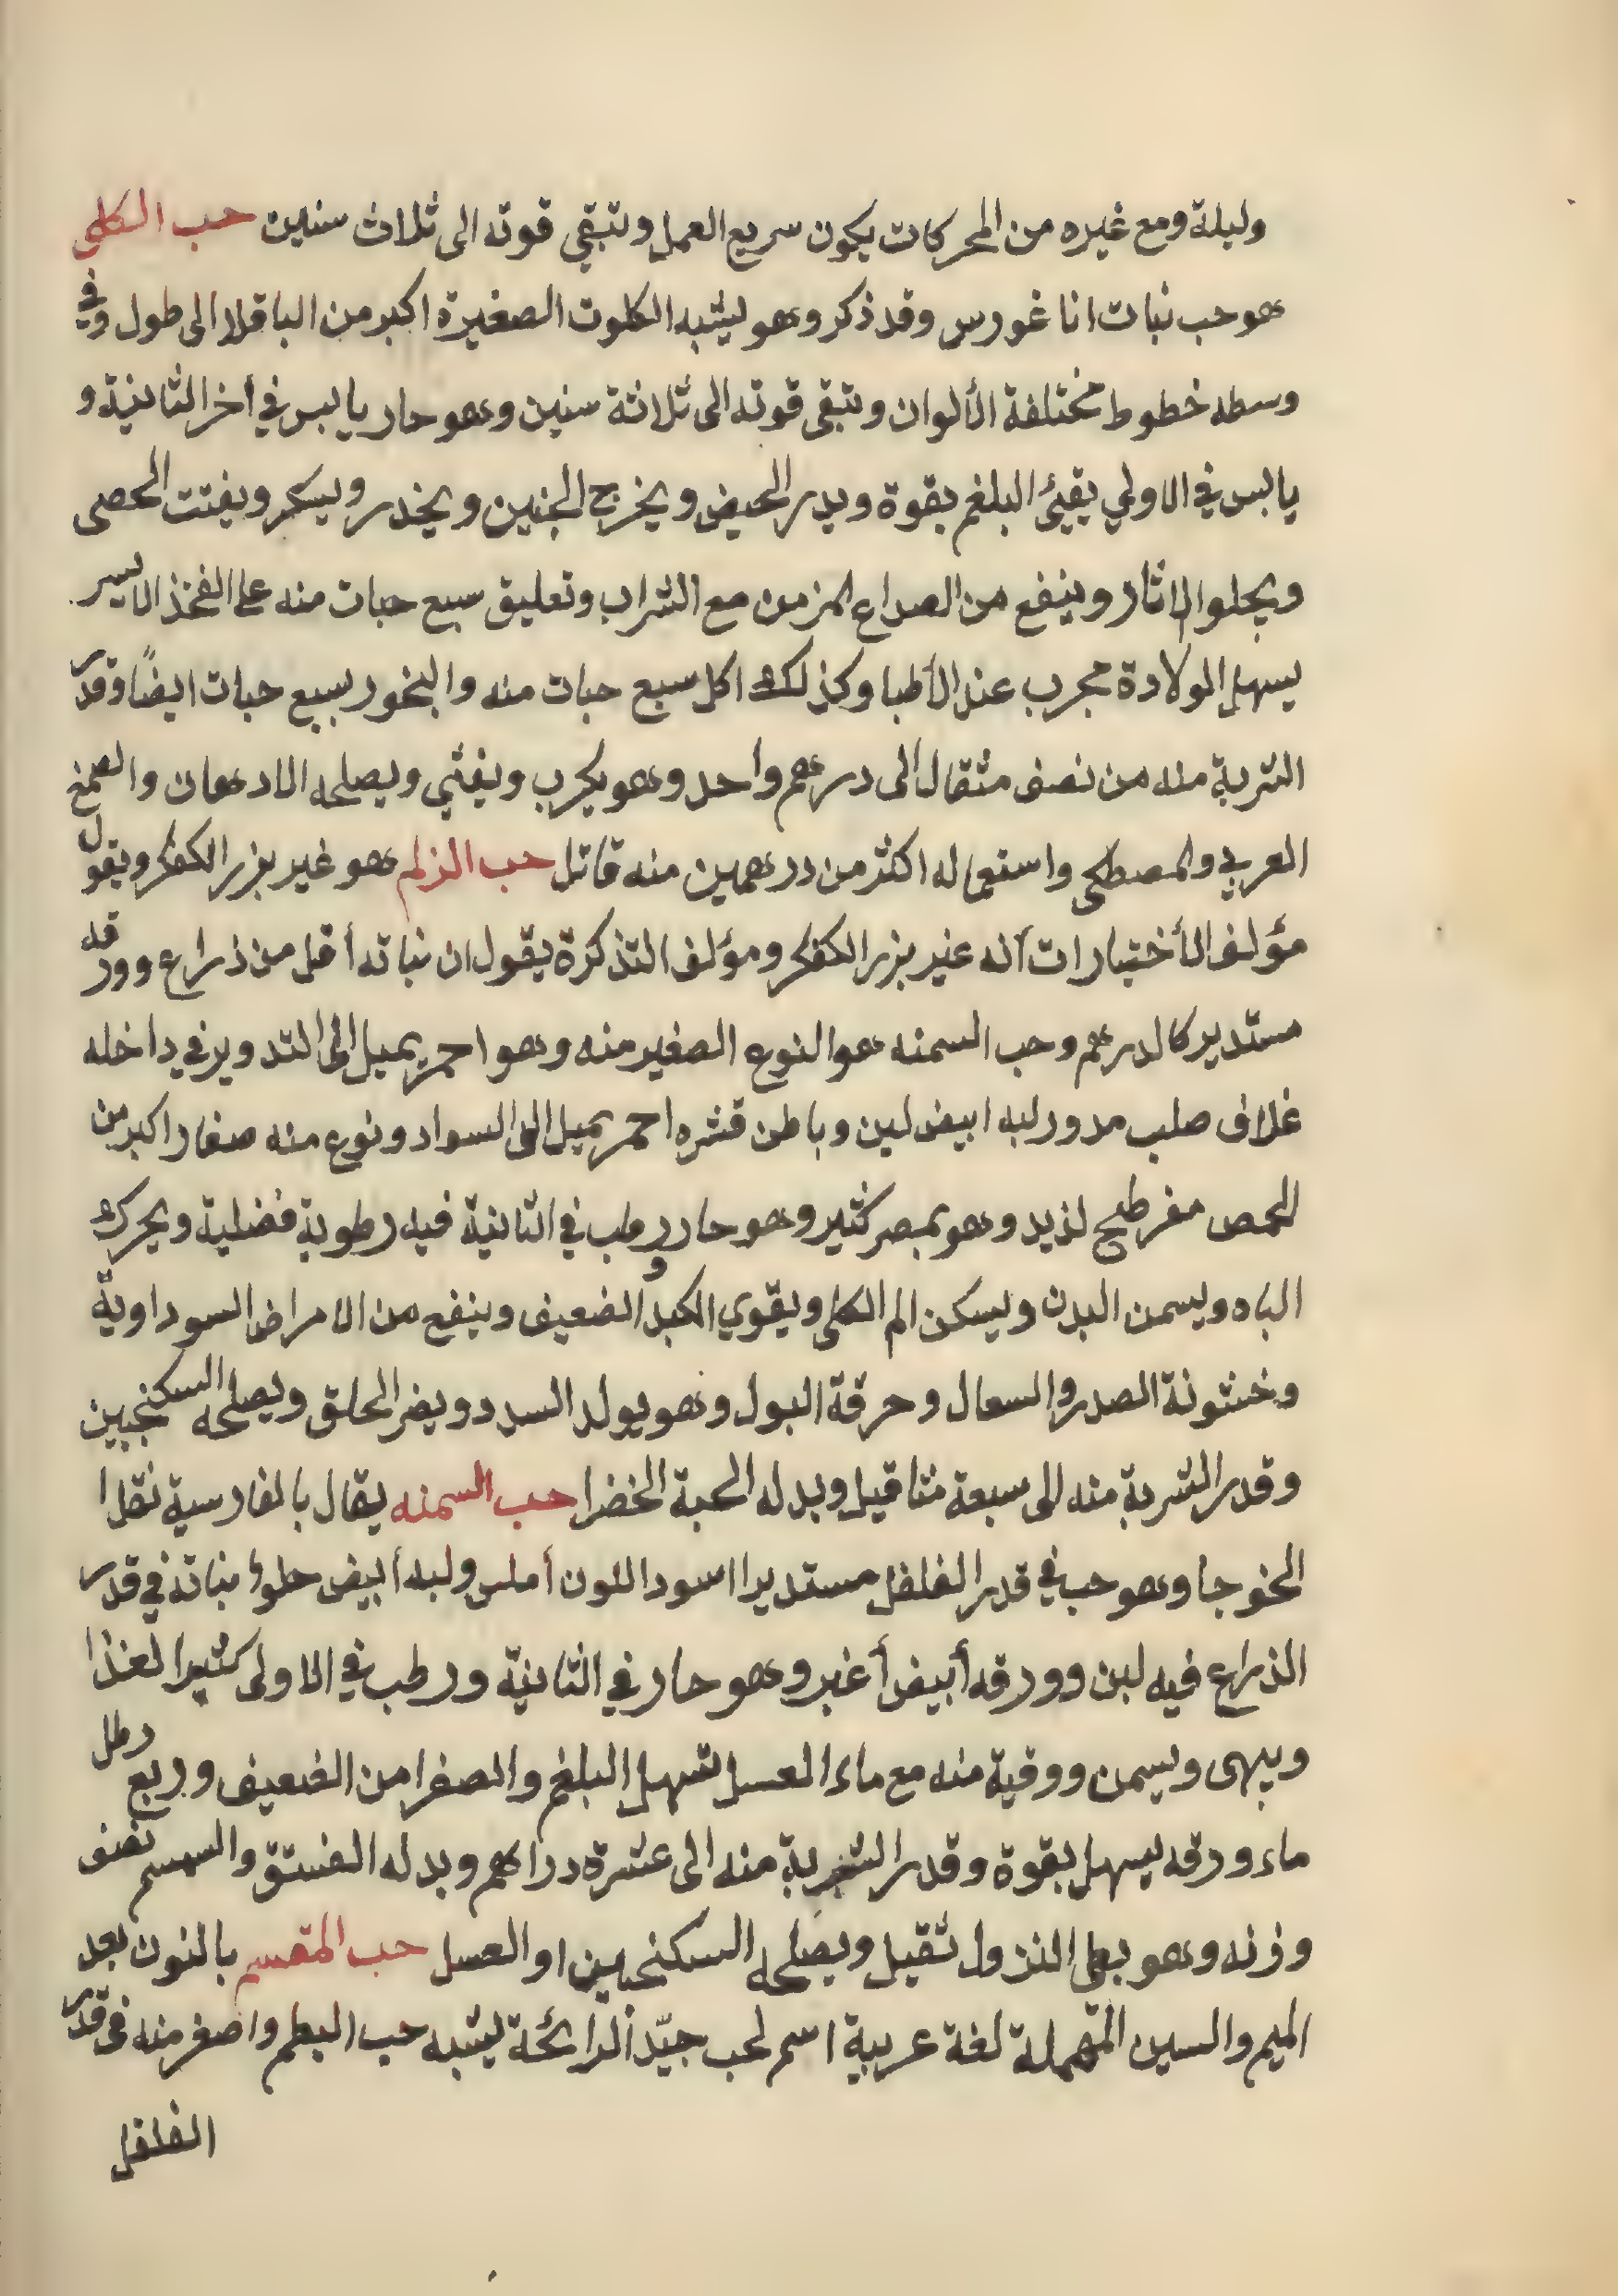 وليلة ومع غيره من المحركات يكون سريع العمل وتبقي قوته الى ثلاث سنين حب الكلى
هو حب نبات اناغورس وقد ذكر وهو يشبه الكلوت الصغيرة اكبر من الباقلا الى طول وفي
وسطه خطوط مختلفة الألوان وتبقى قوته الى ثلاثة سنين وهو حار يابس في أخر الثانية و
يابس في الاولي يقيئ البلغم بقوة ويدر الحيض ويخرج الجنين ويخدر ويسكر ويفتت الحصى
ويجلوا الاثار وينفع من الصداع المزمن مع الشراب وتعليق سبع حبات منه على الفخذ الايسر
يسهل الولادة مجرب عند الأطبا وكذلك اكل سبع حبات منه والبخور بسبع حبات ايضًا وقدر
الشربة منه من نصف مثقال الى درهم واحد وهو يكرب ويغثي ويصلحه الادهان والصمغ
العربي والمصطكى واستعماله اكثر من درهمين منه قاتل حب الزلم هو غير بزر الكفكر ويقول
مؤلف الأختيارات أنه غير بزر الكفكر ومؤلف التذكرة يقول ان نباته أقل من ذراع وورقه
مستدير كالدرهم وحب السمنه هو النوع الصغير منه وهو احمر يميل الى التدوير في داخله
غلاف صلب مدور لبه ابيض لين وباطن قشره احمر يميل الى السواد ونوع منه صغار اكبر من
الحمص مفرطح لذيد وهو بمصر كثير وهو حار رطب في الثانية فيه رطوبة فضلية ويحرك
الباه ويسمن البدن ويسكن الم الكلى ويقوي الكبد الضعيف وينفع من الامراض السوداوية
وخشونة الصدر والسعال وحرقة البول وهو يولد السدد ويضر الحلق ويصلحه السكنجبين
وقدر الشربة منه الى سبعة مثاقيل وبدله الحبة الخضرا حب السمنه يقال بالفارسية نقل
الخوجا وهو حب في قدر الفلفل مستديرا اسود اللون أملس ولبه أبيض حلو نباته في قدر
الذراع فيه لبن وورقه أبيض أغبر وهو حار في الثانية ورطب في الاولى كثير الغذا
ويبهى ويسمن ووقية منه مع ماء العسل تسهل البلغم والصفرا من الضعيف وربع رطل
ماء ورقه يسهل بقوة وقدر الشربة منه الى عشرة دراهم وبدله الفستق والسمسم نصف
وزنه وهو بطي النزول ثقيل ويصلحه السكنجبين او العسل حب المقسم بالنون بعد
الميم والسين المهملة لغة عربية اسم لحب جيّد الرائحة يشبه حب البطم واصغر منه في قدر
الفلفل